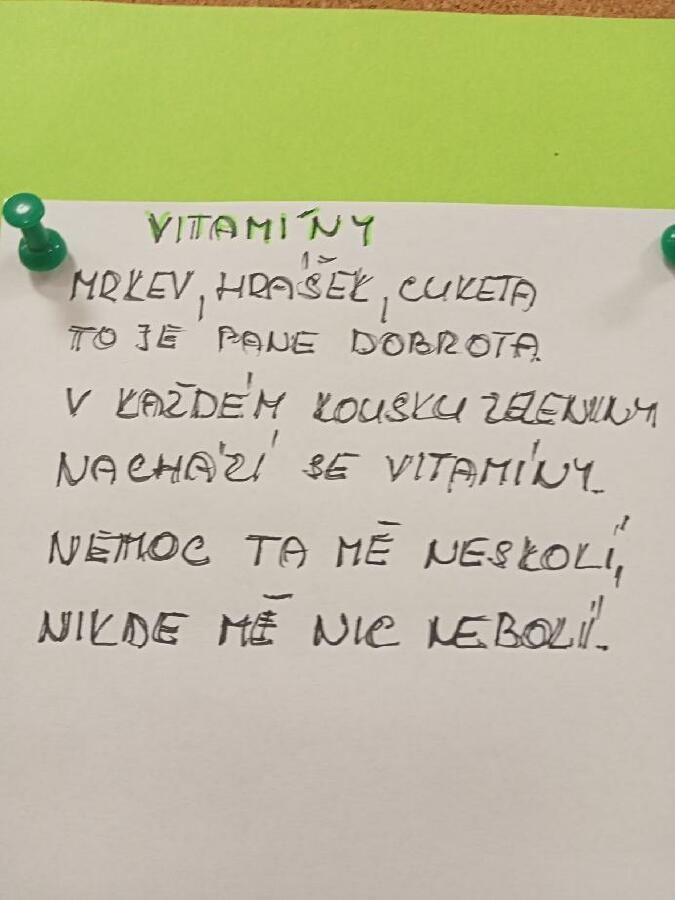 VITAMÍNY
MRKEV, HRÁŠEK, CUKETA
TO JE PANE DOBROTA.
V KAŽDÉM KOUSKU ZELENINY
NACHÁZÍ SE VITAMÍNY.
NEMOC TA MĚ NESKOLÍ,
NIKDE MĚ NIC NEBOLÍ.